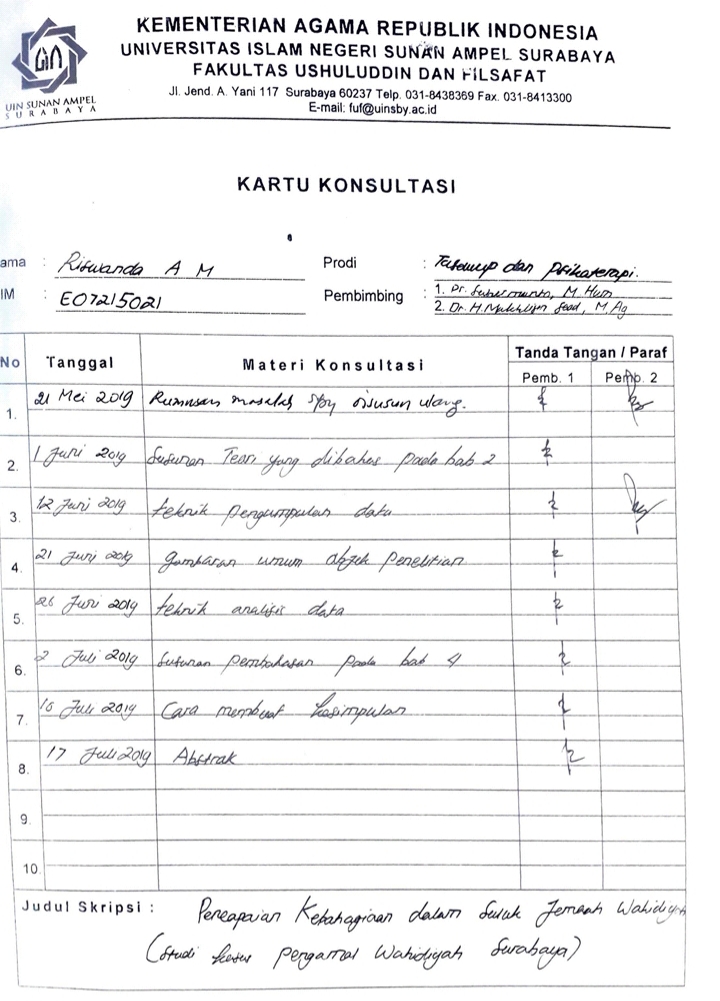 KEMENTERIAN AGAMA REPUBLIK INDONESIA
UNIVERSITAS ISLAM NEGERI SUNAN AMPEL SURABAYA
FAKULTAS USHULUDDIN DAN FILSAFAT
Jl. Jend. A. Yani 117 Surabaya 60237 Telp. 031-8438369 Fax. 031-8413300
E-mail: fuf@uinsby.ac.id
UIN SUNAN AMPEL
SURABAYA
KARTU KONSULTASI
ama : Riswanda A M Prodi : Tasawuf dan Psikoterapi.
IM : E07215021 Pembimbing : 1. Dr. M. Hum
2. Dr. H. M. Ag
No Tanggal Materi Konsultasi Tanda Tangan / Paraf
Pemb. 1 Pemb. 2
1. 21 Mei 2019 Rumusan masalah spy disusun ulang.
2. 1 Juni 2019 Susunan Teori yang dibahas pada bab 2
3. 12 Juni 2019 teknik pengumpulan data
4. 21 Juni 2019 gambaran umum objek penelitian
5. 26 Juni 2019 teknik analisis data
6. 2 Juli 2019 Susunan pembahasan pada bab 4
7. Juli 2019 Cara membuat kesimpulan
8. 17 Juli 2019 Abstrak
9.
10.
Judul Skripsi : Pencapaian Kebahagiaan dalam Suluk Jemaah Wahidiyah
(Studi kasus pengamal Wahidiyah Surabaya)